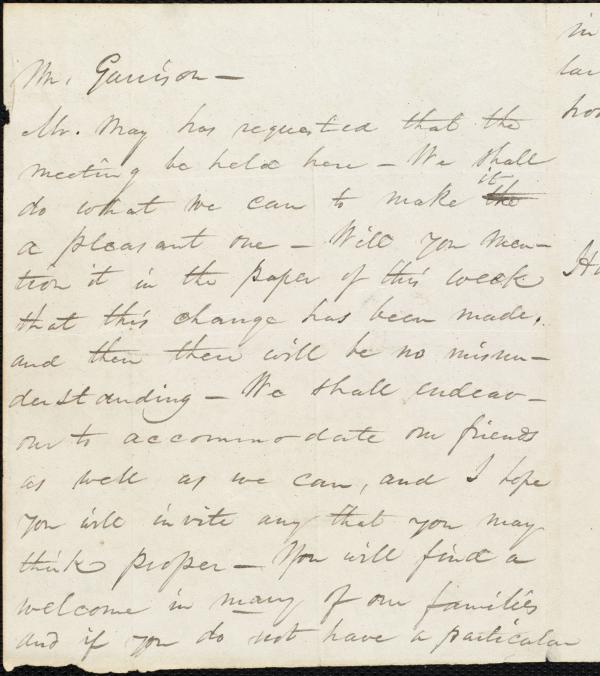 Mr. Garrison —
Mr. May has requested that the
meeting be held here — We shall
do what we can to make it
a pleasant one — Will you men-
tion it in the paper of this week
that this change has been made,
and then there will be no misun-
derstanding — We shall endeav-
our to accommodate our friends
as well as we can, and I hope
you will invite any that you may
think proper — You will find a
welcome in many of our families
and if you do not have a particular
in